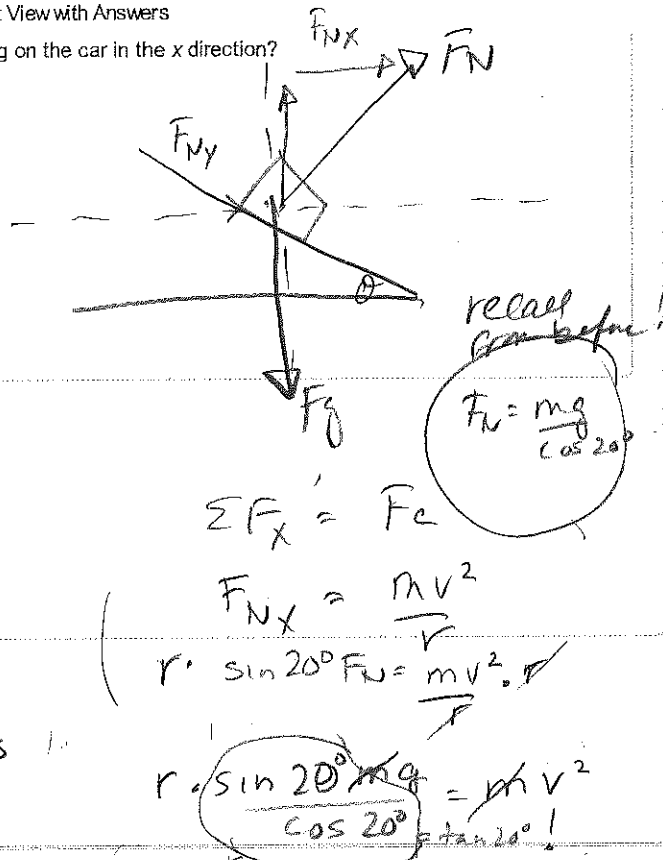 : View with Answers
g on the car in the x direction?
F_NX
F_N
F_Ny
θ
recall
from before!
F_g
F_N = mg / cos 20°
ΣF_X = F_c
F_NX = mv² / r
r · sin 20° F_N = mv² / r · r
s
r · sin 20° mg / cos 20° = mv²
= tan 20° !